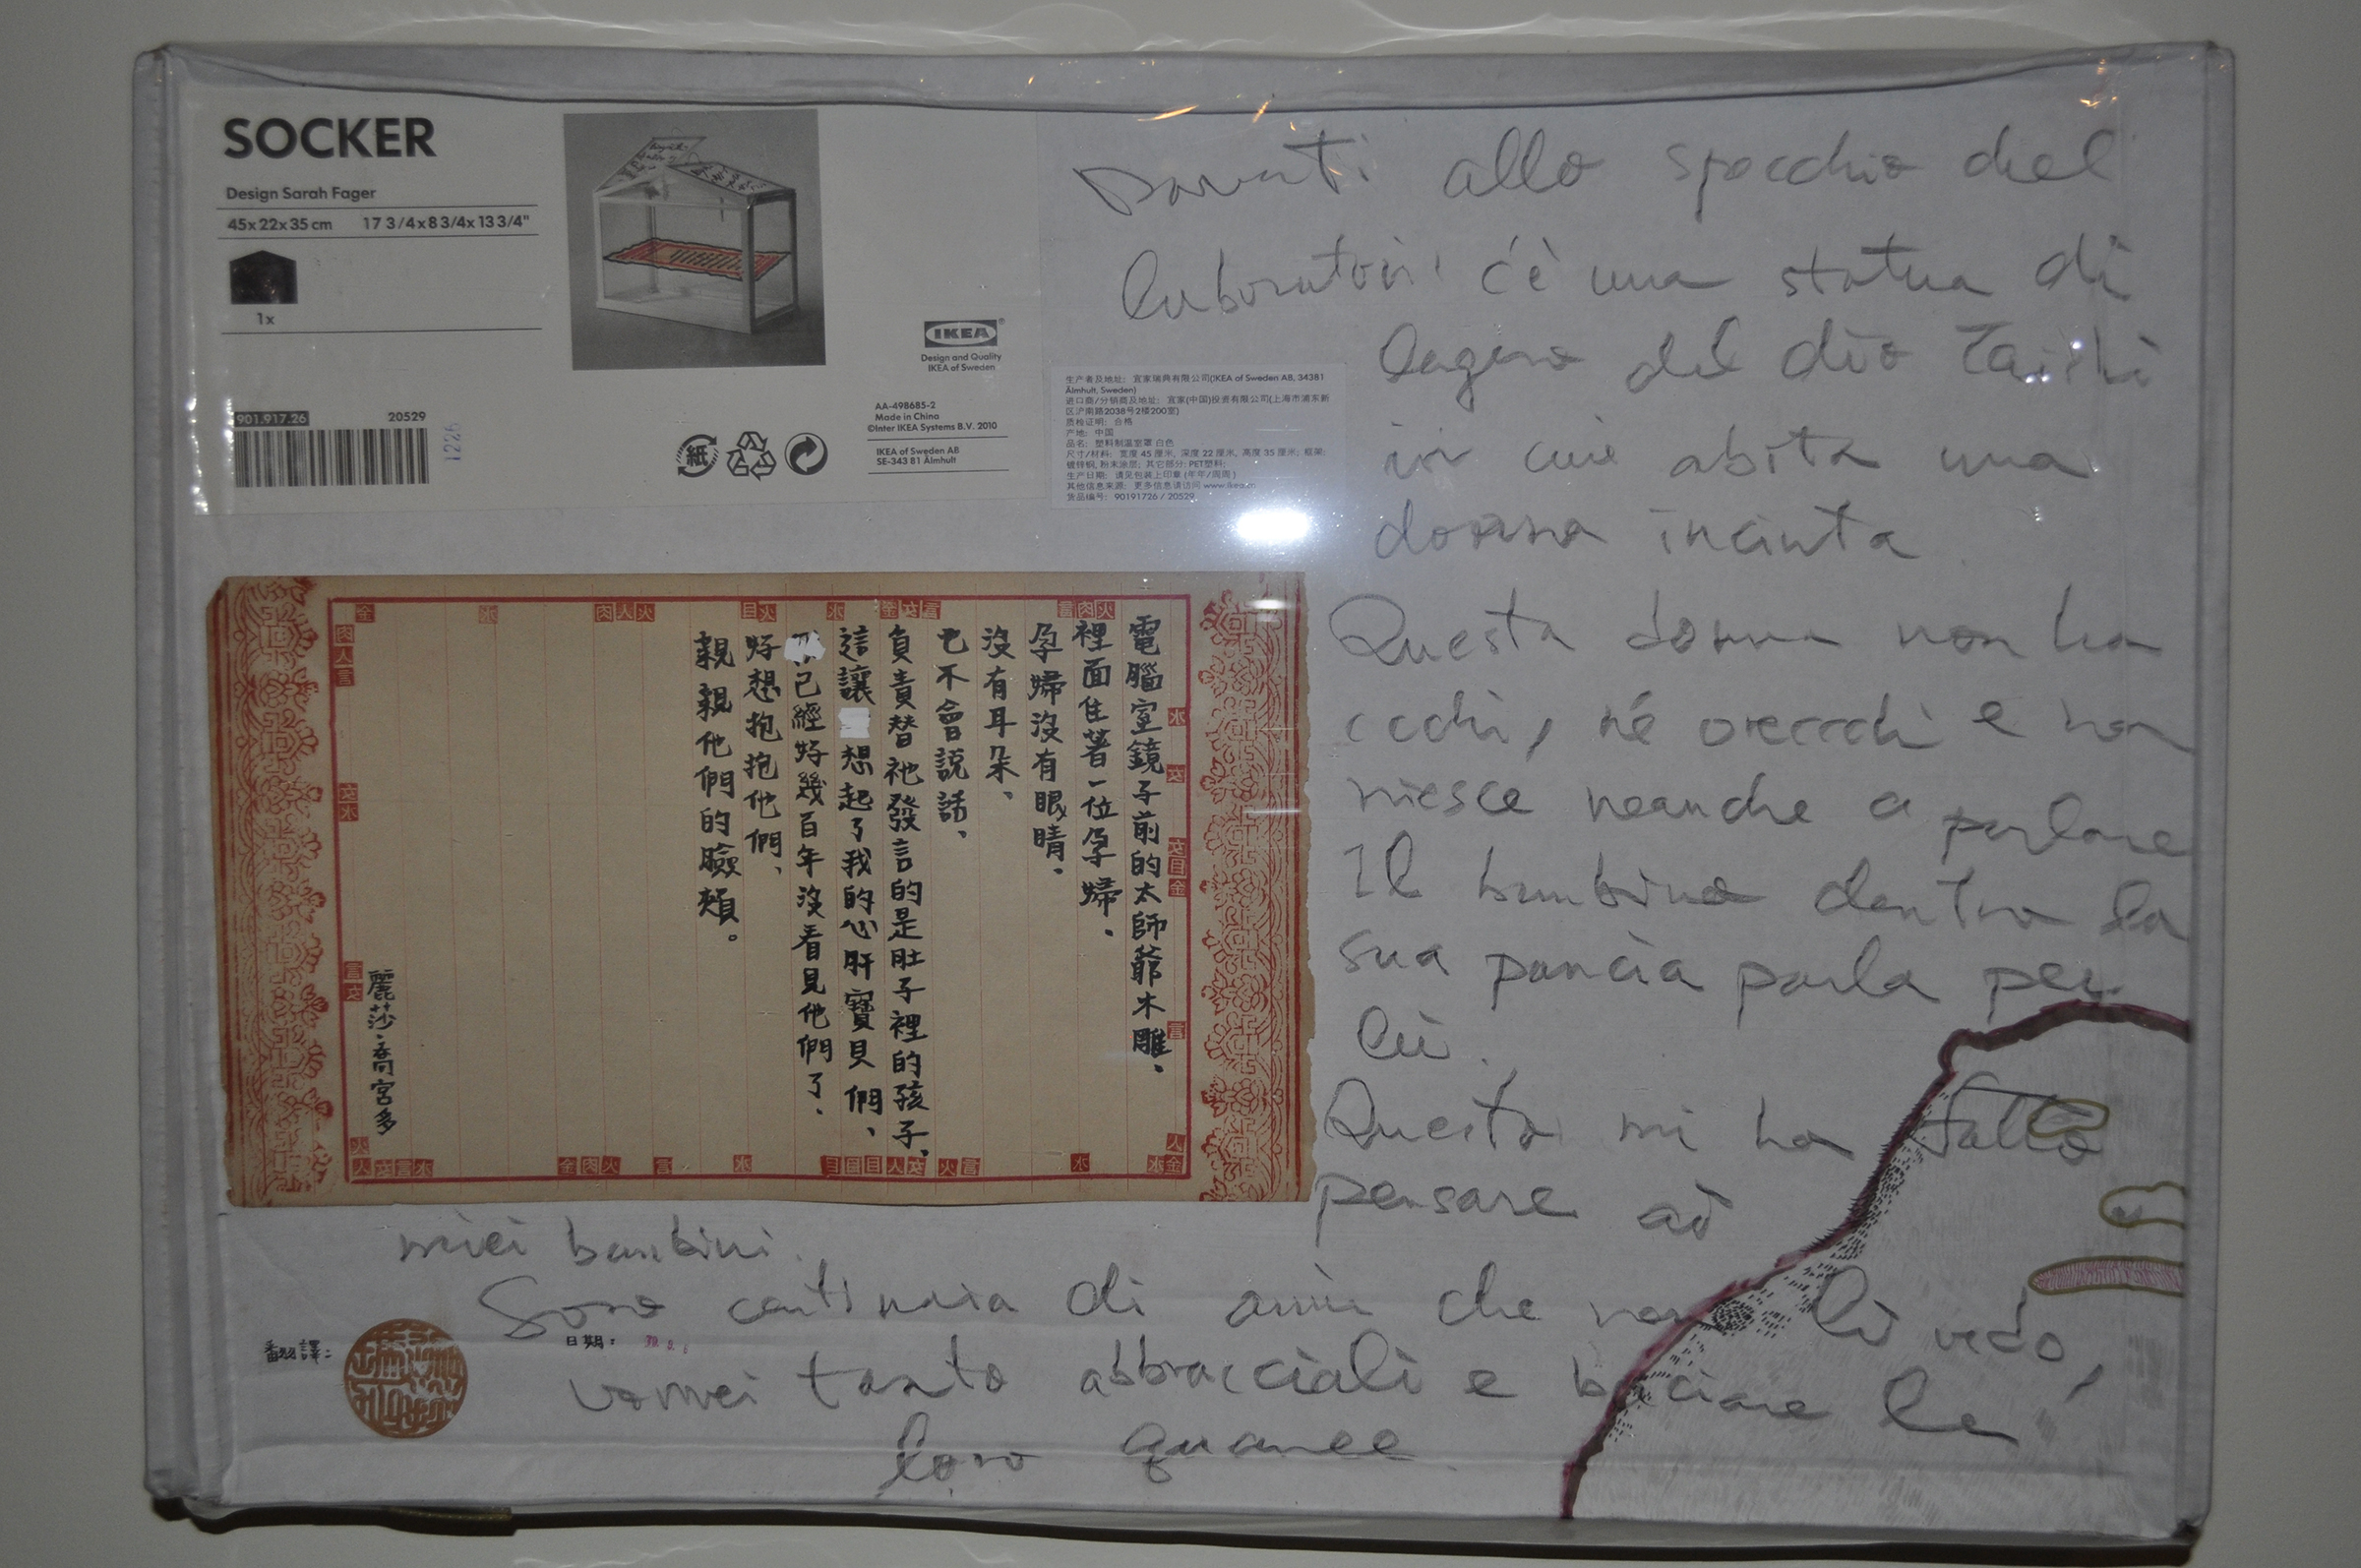 SOCKER
Design Sarah Fager
45x22x35 cm 17 3/4x8 3/4x13 3/4"
1x
901.917.26 20529
1225
IKEA
Design and Quality
IKEA of Sweden
AA-498685-2
Made in China
©Inter IKEA Systems B.V. 2010
IKEA of Sweden AB
SE-343 81 Älmhult
紙
生产者及地址: 宜家瑞典有限公司(IKEA of Sweden AB, 34381
Älmhult, Sweden)
进口商/分销商及地址: 宜家(中国)投资有限公司(上海市浦东新
区沪南路2038号2楼200室)
质检证明: 合格
产地: 中国
品名: 塑料制温室罩 白色
尺寸/材料: 宽度 45 厘米, 深度 22 厘米, 高度 35 厘米; 框架:
镀锌钢, 粉末涂层; 其它部分: PET塑料;
生产日期: 请见包装上印章 (年年/周周)
其他信息来源: 更多信息请访问 www.ikea.cn
货品编号: 90191726 / 20529
電腦室鏡子前的太師爺木雕、
裡面住著一位孕婦、
孕婦沒有眼睛、
沒有耳朵、
也不會說話、
負責替祂發言的是肚子裡的孩子、
這讓 想起了我的心肝寶貝們、
已經好幾百年沒看見他們了、
好想抱抱他們、
親親他們的臉頰。
麗莎·喬宮多
Davanti allo specchio del
laboratori c'è una statua di
legno del dio Taishi
in cui abita una
donna incinta
Questa donna non ha
occhi, né orecchi e non
riesce neanche a parlare
Il bambino dentro la
sua pancia parla per
lei.
Questo mi ha fatto
pensare ai
miei bambini.
Sono centinaia di anni che non li vedo,
vorrei tanto abbracciali e baciare le
loro guance.
翻譯:
日期: